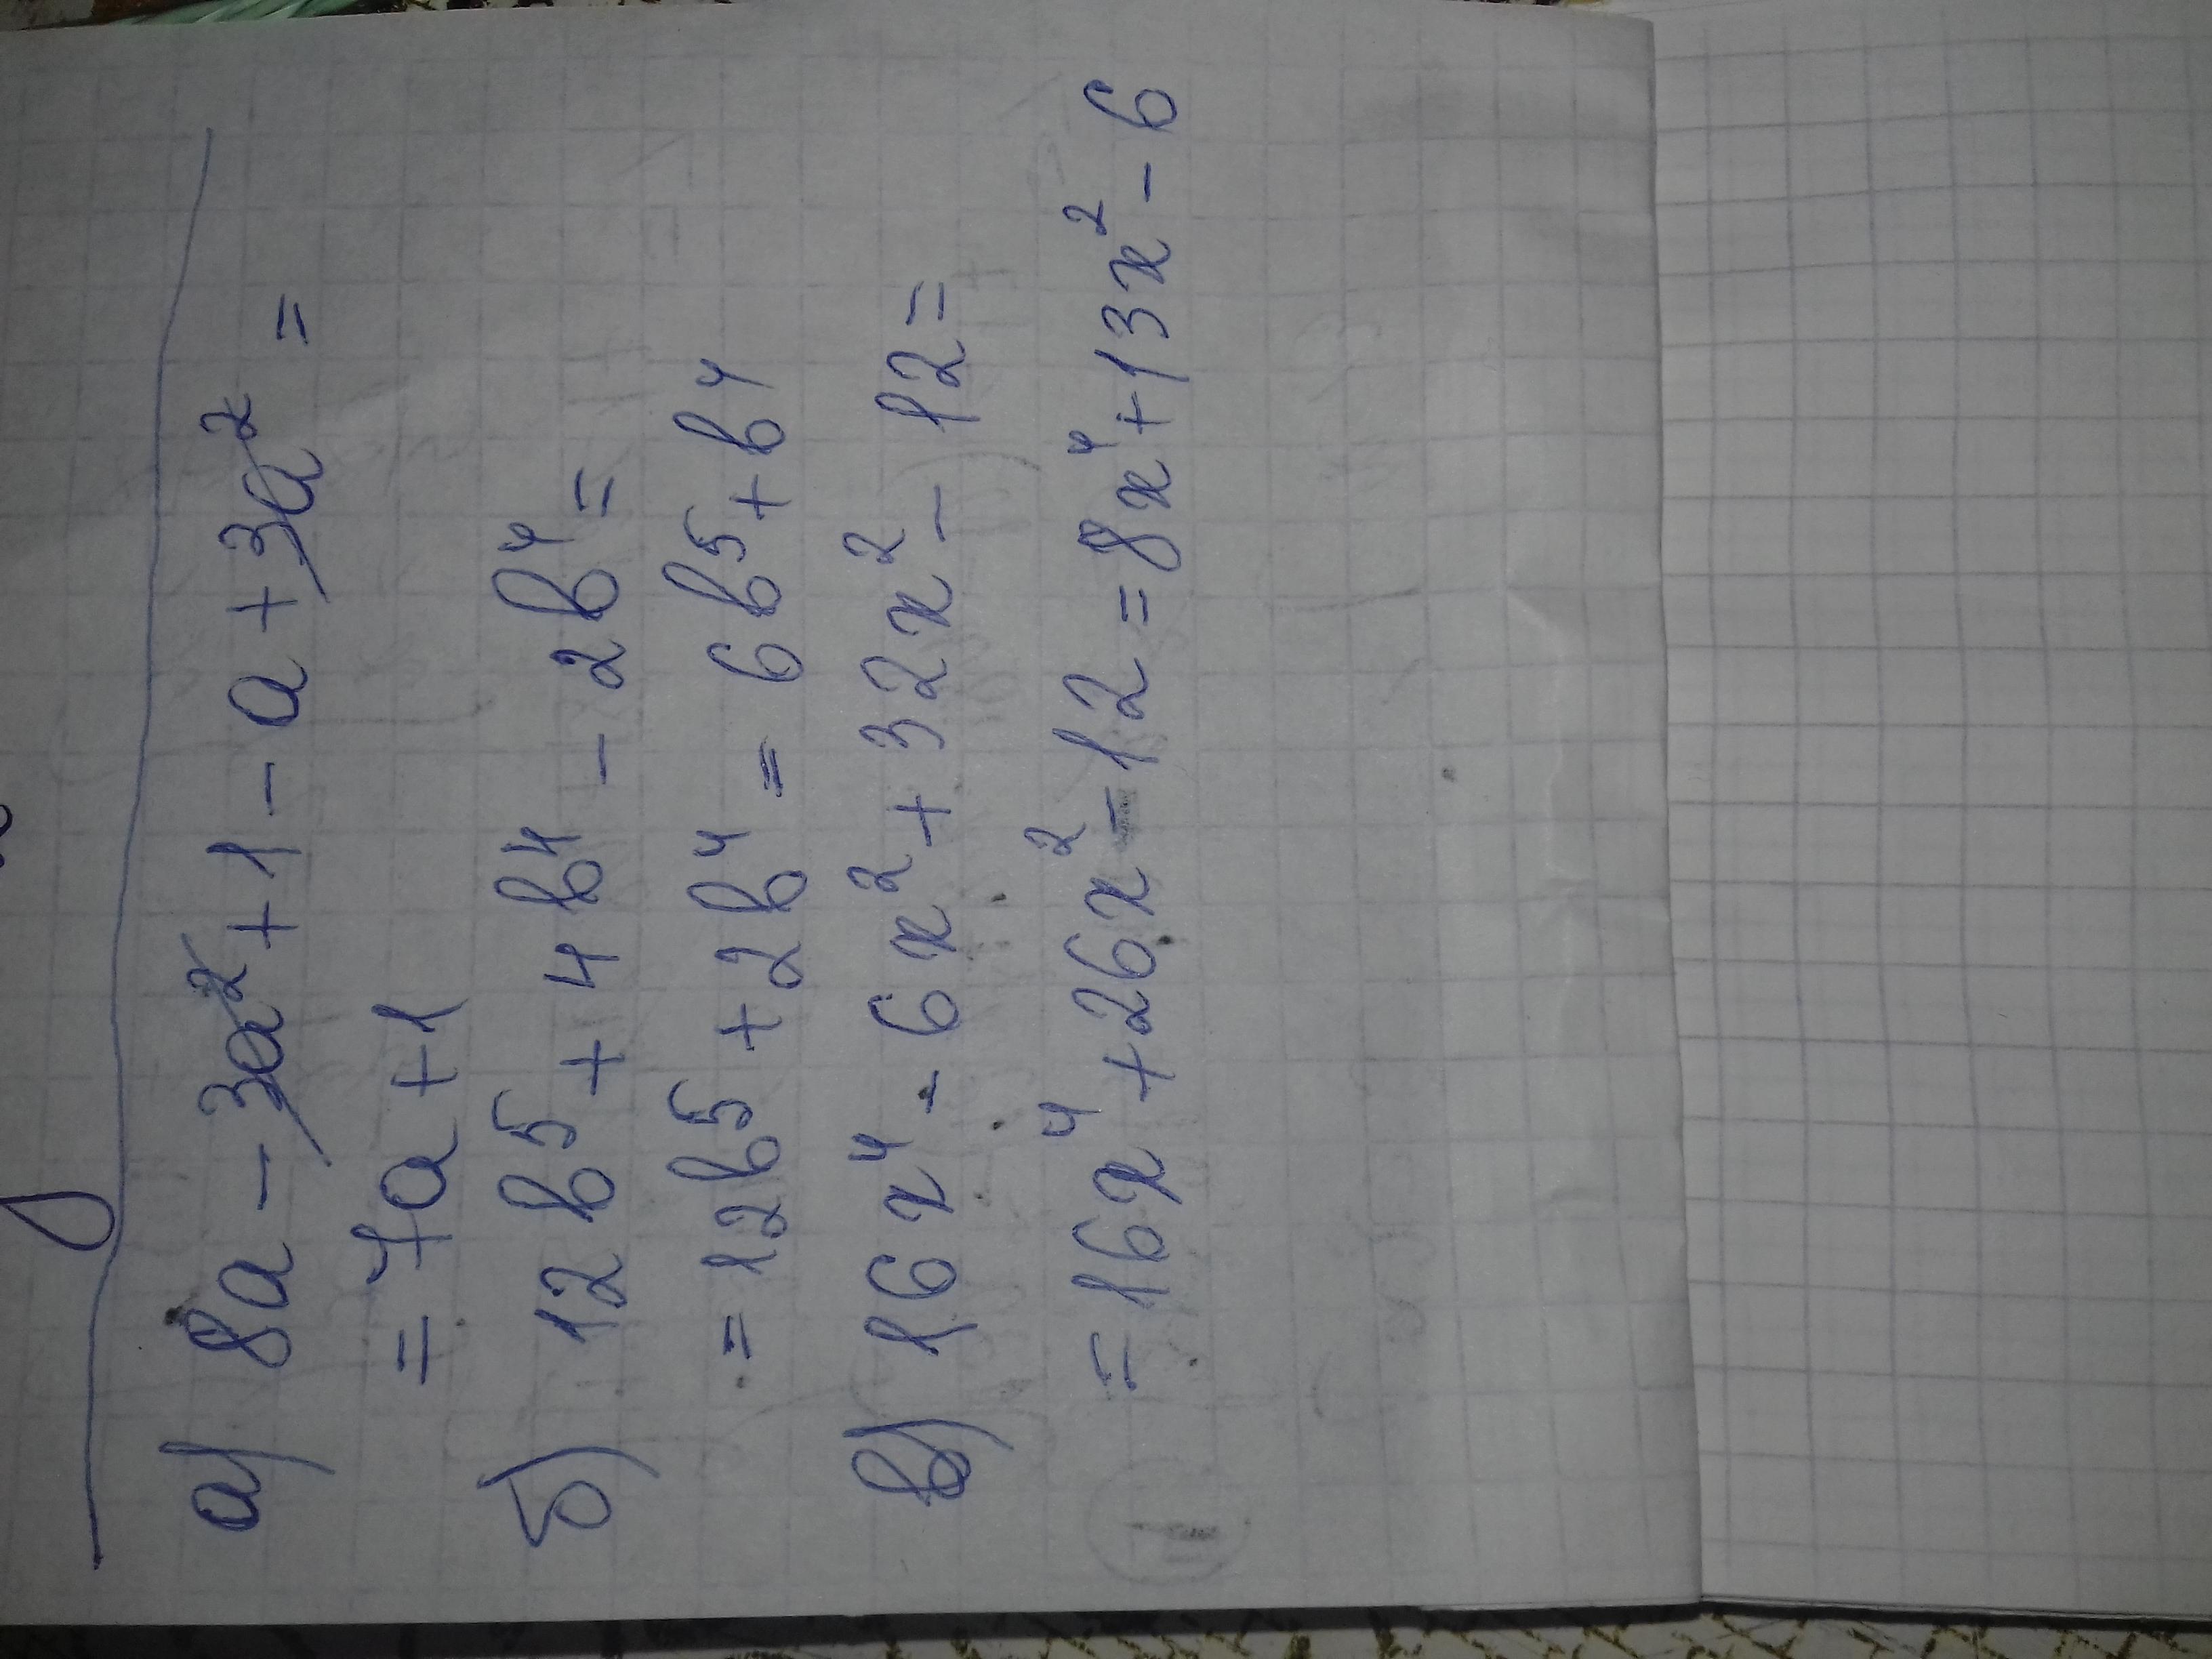 а) 8a - 3a² + 1 - a + 3a² =
= 7a + 1
б) 12b⁵ + 4b⁴ - 2b⁴ =
= 12b⁵ + 2b⁴ = 6b⁵ + b⁴
в) 16x⁴ - 6x² + 32x² - 12 =
= 16x⁴ + 26x² - 12 = 8x⁴ + 13x² - 6